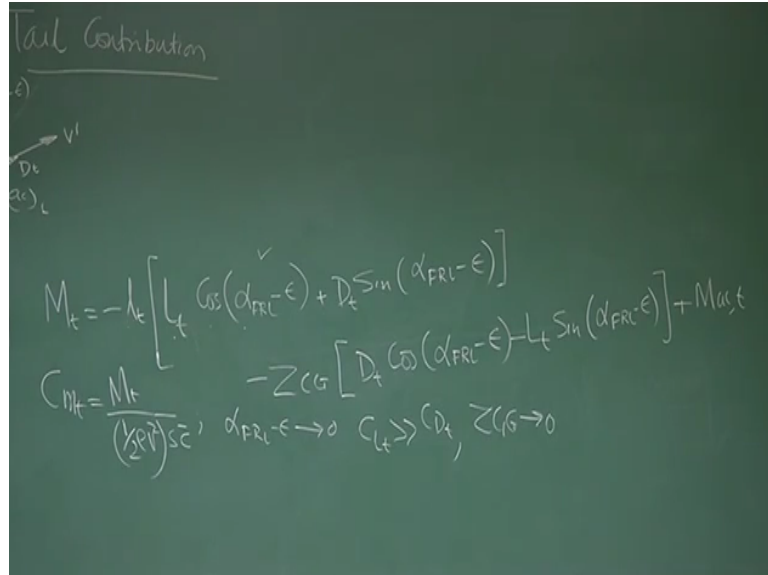 Tail Contribution
-ε)
V'
Dt
(ac)t
Mt = -lt [Lt Cos(αFRL-ε) + Dt Sin(αFRL-ε)]
-ZCG [Dt Cos(αFRL-ε) - Lt Sin(αFRL-ε)] + Mac,t
Cmt = Mt / (½ρV²)Sc̄, αFRL-ε→0 CLt >> CDt, ZCG→0